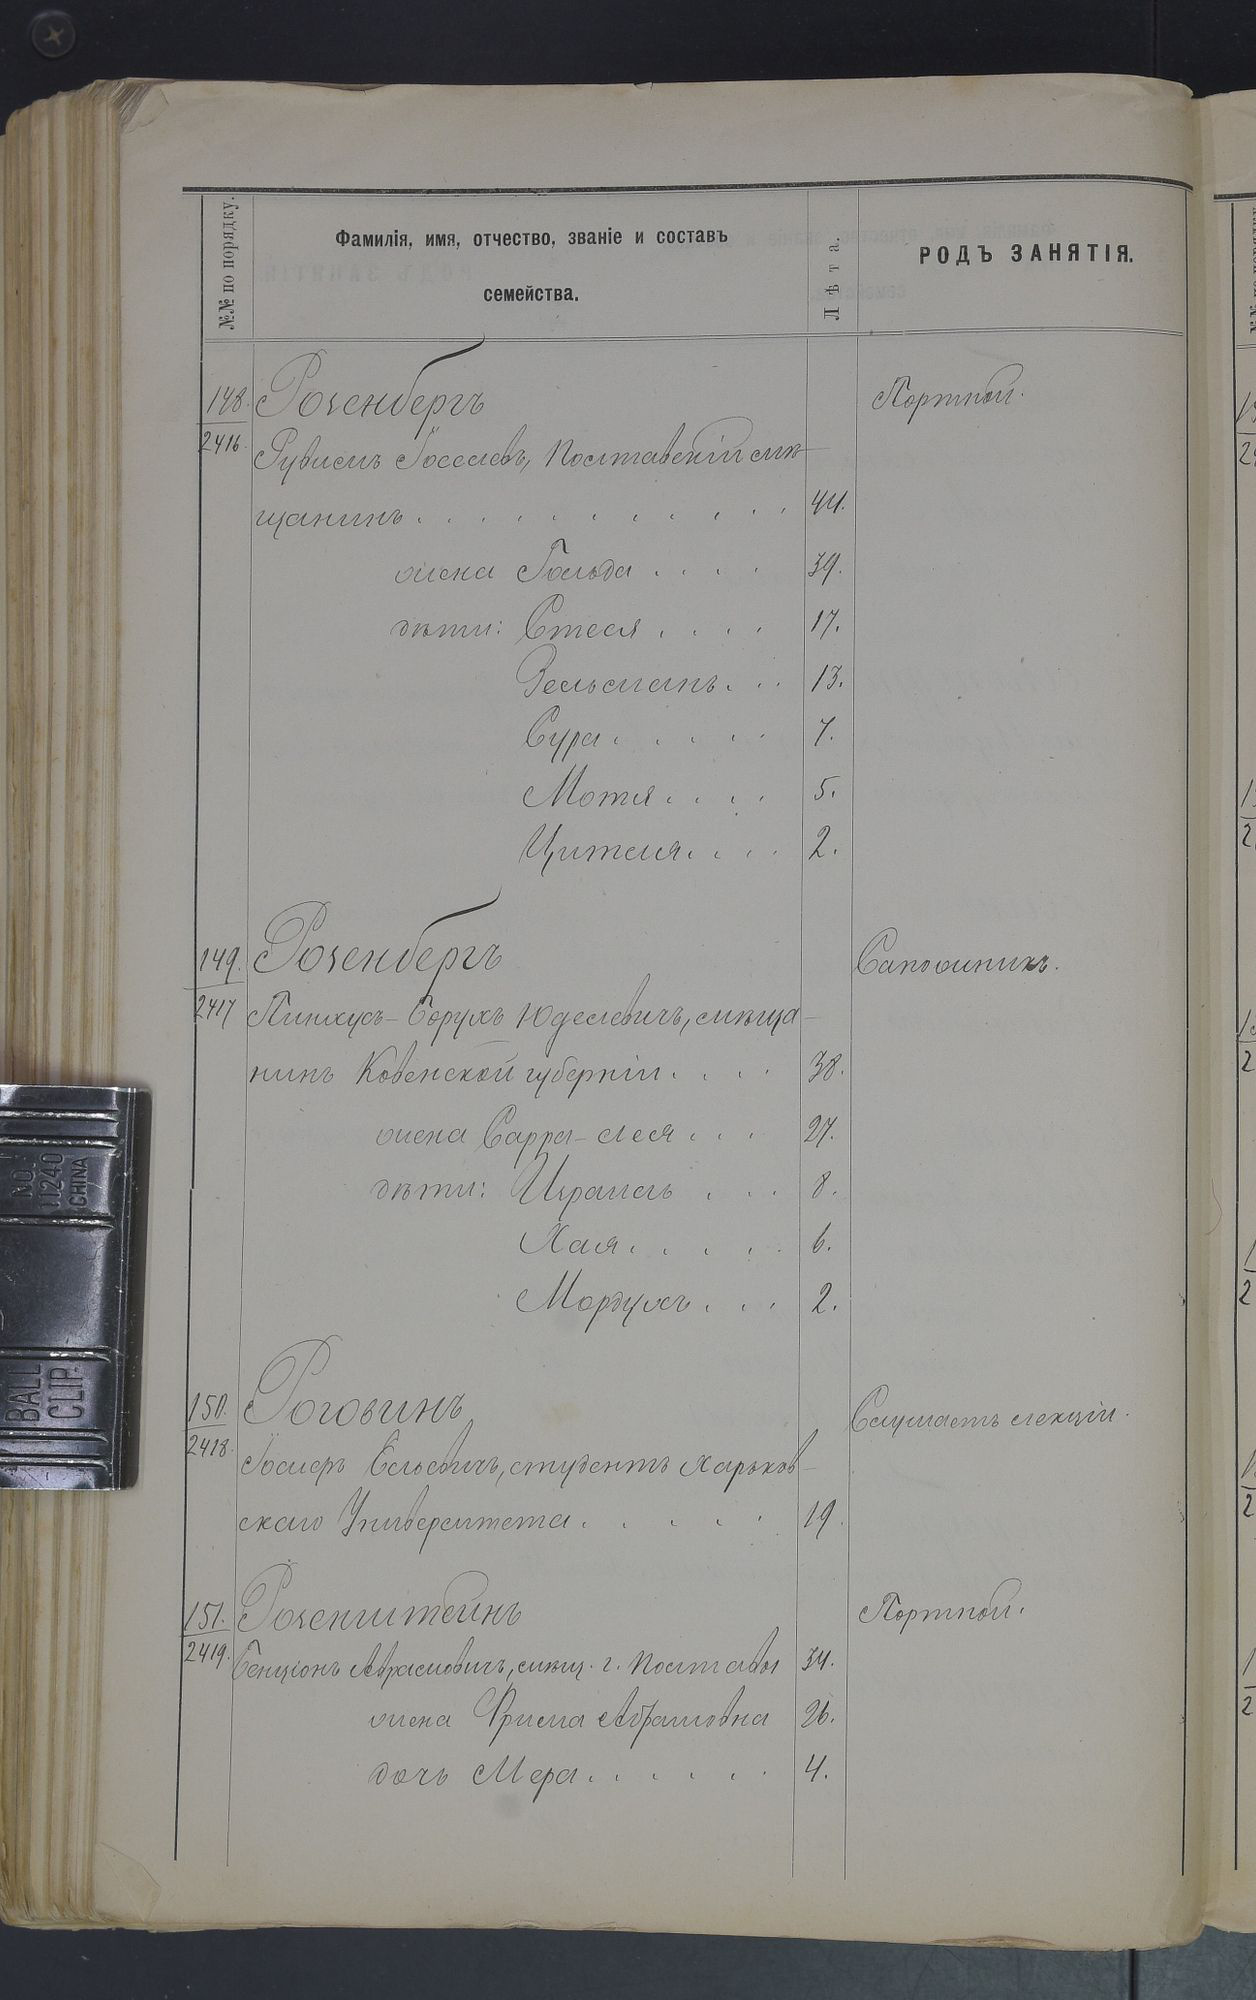 №№ по порядку.
Фамилія, имя, отчество, званіе и составъ
семейства.
Лѣта.
РОДЪ ЗАНЯТІЯ.
148. Розенбергъ Портной.
2416. Рувимъ Іоселевъ, Полтавскій мѣ-
щанинъ . . . . . . . . . . . 44.
жена Гольда . . . . 39.
дѣти: Стеся . . . . 17.
Зельманъ. . . 13.
Сура . . . . . 7.
Мотя . . . . 5.
Цителя. . . . 2.
149. Розенбергъ Сапожникъ.
2417 Пинхусъ-Борухъ Юделевичъ, мѣща-
нинъ Ковенской губерніи. . . . 38.
жена Сарра-Леся . . . 27.
дѣти: Израиль . . . 8.
Хая. . . . . 6.
Мордухъ . . . 2.
150. Роговинъ Слушаетъ лекціи.
2418. Іосифъ Ельевичъ, студентъ Харьков-
скаго Университета . . . . . 19.
151. Розенштейнъ Портной.
2419. Бенціонъ Абрамовичъ, мѣщ. г. Полтавы 34.
жена Фрима Абрамовна 26.
дочь Мера . . . . . . 4.
NO.
11240
CHINA
BALL
CLIP.